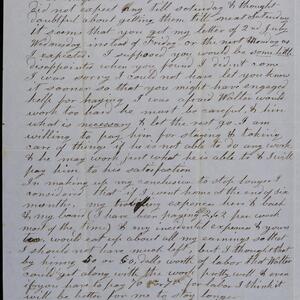 did not expect any till saturday & thought
doubtful about getting them till next saturday
it seems that you got my letter of 2nd July
Wednesday instead of friday or the next monday as
I expected I suppose you would be some little
disappointed when you found I didn't come
I was sorry I could not have let you know
it sooner so that you might have engaged
help for haying I was afraid Walter would
work too hard he must be careful & him
what is necessary & let the rest go. I am
willing to pay him for staying & taking
care of things if he is not able to do any work
& he may work just what he is able to & I will
pay him to his satisfaction
In making up my conclusion to stop longer I
considered that if I went home at the end of six
months, my expence here & back
& my board (I have been paying per week
most of the time) & my incidental expence & yours
would eat up about all my earnings so that
I should not have much left, but I that
by hiring 50 or 60, dolls worth of labor that Walter
could get along with the work pretty well & even
if you have to pay 70 or I think it
will be better for me to stay longer